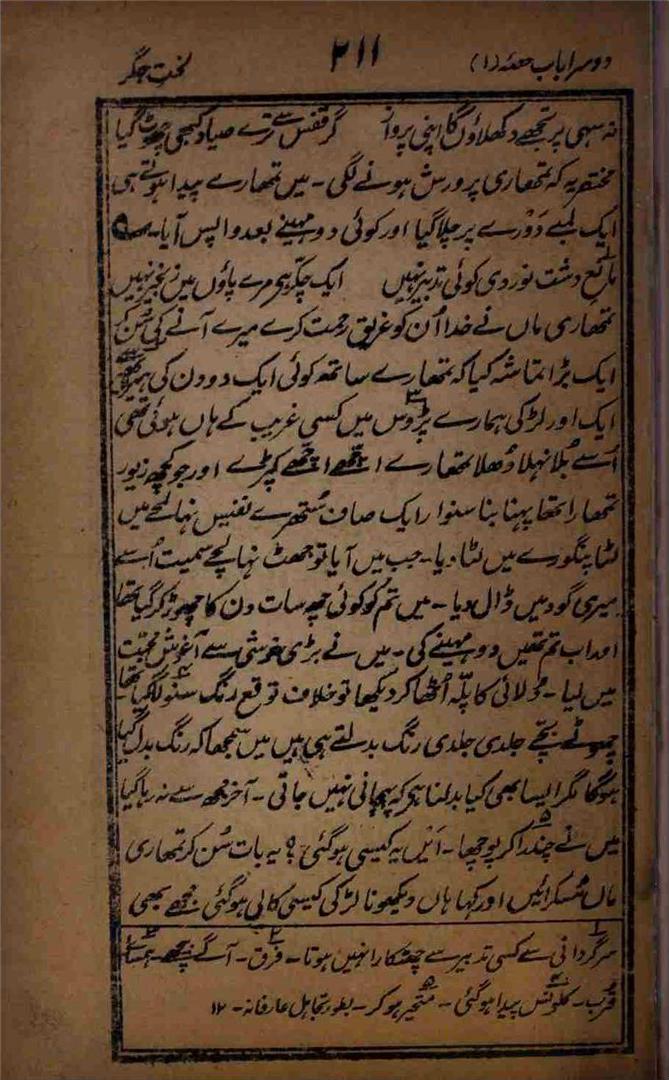 دوسرا باب حصہ (۱) ۲۱۱ لخت جگر
نہ سہی پر تجھے دکھلاؤں گا اپنی پرواز گر قفس سے ترے صیاد کبھی چھوٹ گیا
مختصر یہ کہ تمھاری پرورش ہونے لگی۔ میں تمھارے پیدا ہوتے ہی
ایک لمبے دَوْرے پر چلا گیا اور کوئی دو مہینے بعد واپس آیا۔
مانع دشت نوردی کوئی تدبیر نہیں ایک چکر ہی مرے پاؤں میں زنجیر نہیں
تمھاری ماں نے خدا اُن کو غریق رحمت کرے میرے آنے کی سُن کر
ایک بڑا تماشہ کیا کہ تمھارے ساتھ کوئی ایک دو دن کی
ایک اور لڑکی ہمارے پڑوس میں کسی غریب کے ہاں ہوئی تھی
اُسے بُلا نہلا دُھلا تمھارے اچھے اچھے کپڑے اور جو کچھ زیور
تمھارا تھا پہنا بنا سنوار ایک صاف سُتھرے نفیس نہالچے میں
لٹا پنگورے میں لٹا دیا۔ جب میں آیا تو جھٹ نہالچے سمیت اُسے
میری گود میں ڈال دیا۔ میں تم کو کوئی چھ سات دن کا چھوڑ کر گیا تھا
اور اب تم تھیں دو مہینے کی۔ میں نے بڑی خوشی سے آغوش محبّت
میں لیا۔ دُلائی کا پلّہ اُٹھا کر دیکھا تو خلاف توقع رنگ سنولا گیا تھا
چھوٹے بچے جلدی جلدی رنگ بدلتے ہی ہیں میں سمجھا کہ رنگ بدل گیا
ہوگا مگر ایسا بھی کیا بدلنا ہر کہ پہچانی نہیں جاتی۔ آخر مجھ سے نہ رہا گیا
میں نے چندا کر پوچھا۔ اَیں یہ کیسی ہوگئی؟ یہ بات سُن کر تمھاری
ماں مُسکرائیں اور کہا ہاں دیکھو نا لڑکی کیسی کالی ہو گئی مجھے بھی
سرگردانی سے کسی تدبیر سے چھٹکارا نہیں ہوتا۔ فرق۔ آگے پیچھے۔ ہمسائے
قرب۔ کلونس پیدا ہو گئی۔ متحیر ہو کر۔ بطور تجاہل عارفانہ۔ ۱۲